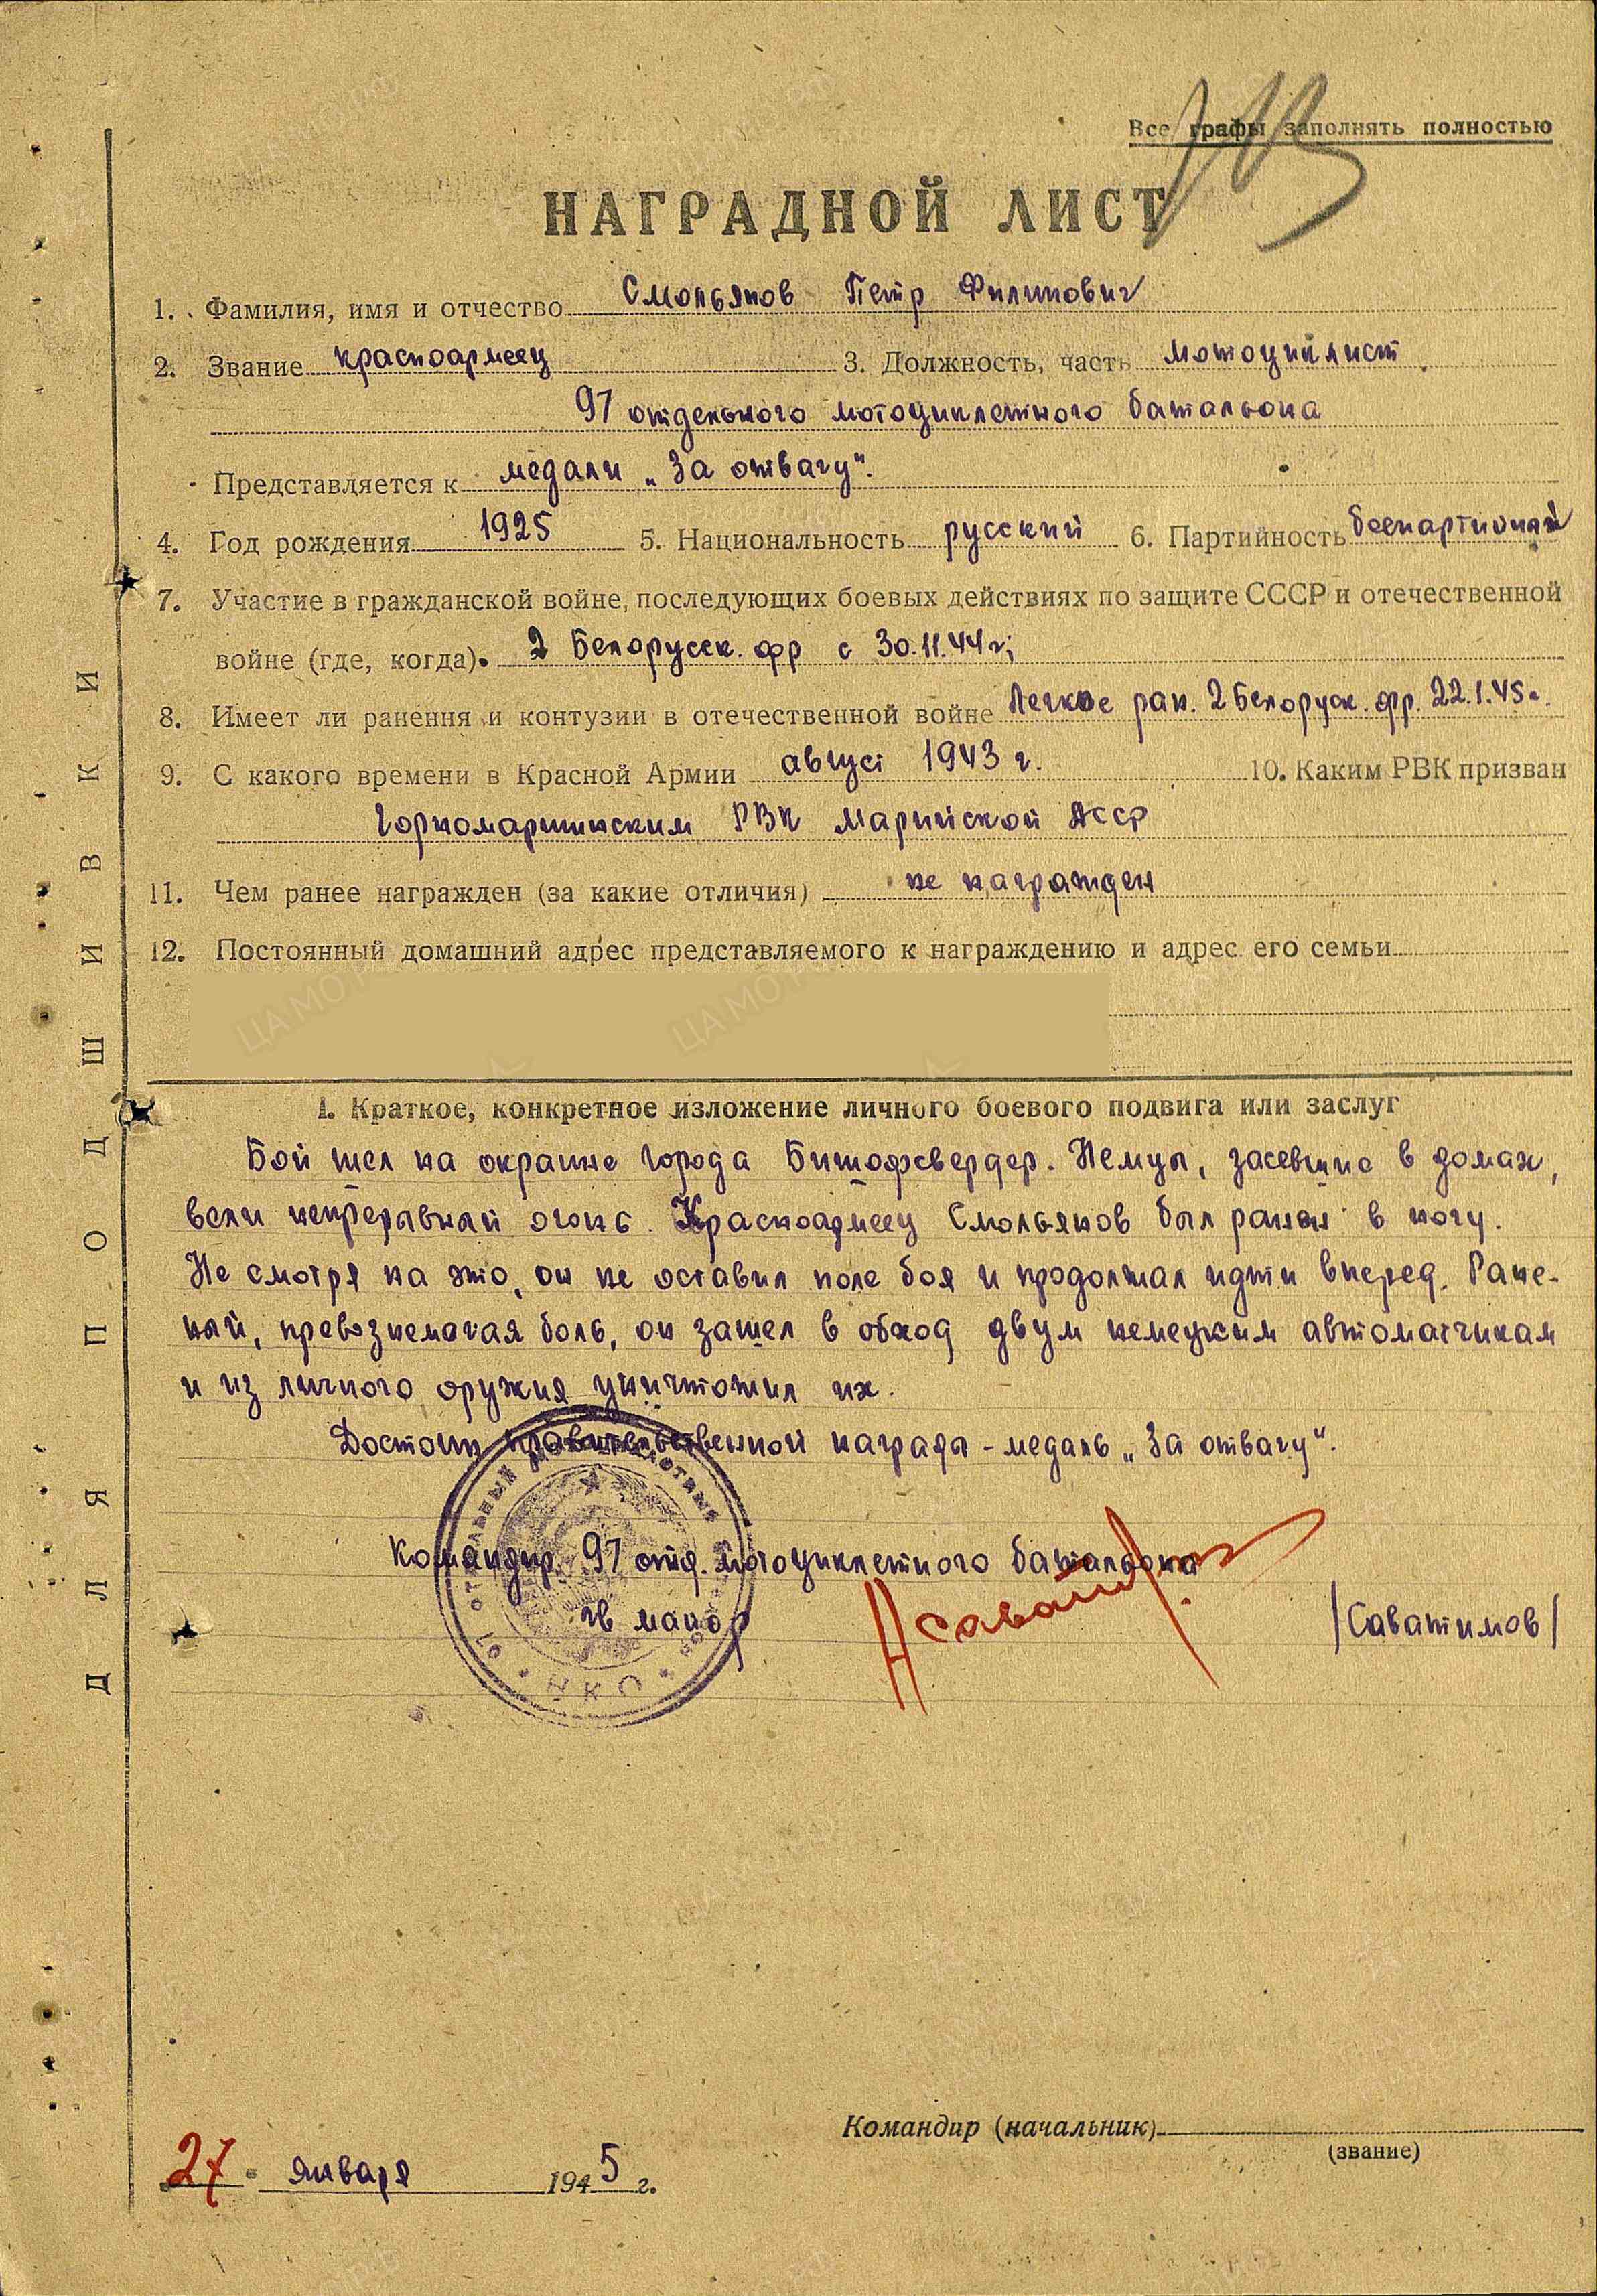 Все графы заполнять полностью
НАГРАДНОЙ ЛИСТ
1. Фамилия, имя и отчество Смольянов Петр Филипович
2. Звание красноармеец 3. Должность, часть мотоциклист
97 отдельного мотоциклетного батальона
Представляется к медали „За отвагу".
4. Год рождения 1925 5. Национальность русский 6. Партийность беспартийный
7. Участие в гражданской войне, последующих боевых действиях по защите СССР и отечественной
войне (где, когда) 2 Белорусск. фр с 30.11.44 г;
8. Имеет ли ранения и контузии в отечественной войне Легкое ран. 2 Белоруск. фр. 22.1.45 г.
9. С какого времени в Красной Армии август 1943 г. 10. Каким РВК призван
Горномарийским РВК Марийской АССР
11. Чем ранее награжден (за какие отличия) не награжден
12. Постоянный домашний адрес представляемого к награждению и адрес его семьи
I. Краткое, конкретное изложение личного боевого подвига или заслуг
Бой шел на окраине города Бишофсвердер. Немцы, засевшие в домах,
вели непрерывный огонь. Красноармеец Смольянов был ранен в ногу.
Не смотря на это, он не оставил поле боя и продолжал идти вперед. Ране-
ный, превознемогая боль, он зашел в обход двум немецким автоматчикам
и из личного оружия уничтожил их.
Достоин правительственной награды - медаль „За отвагу".
Командир 97 отд. мотоциклетного батальона
гв майор /Саватимов/
НКО
Командир (начальник)
(звание)
27 января 1945 г.
ДЛЯ ПОДШИВКИ
ЦАМО РФ